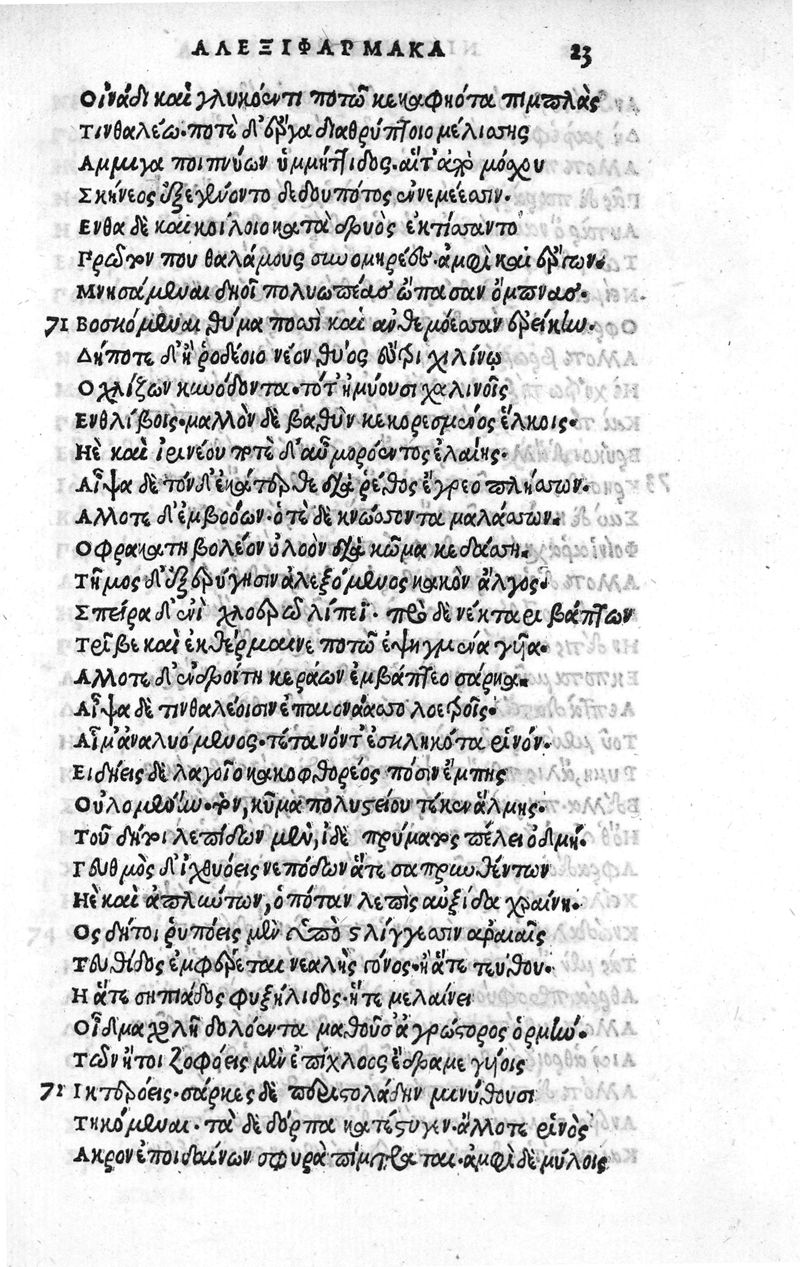 ΑΛΕΞΙΦΑΡΜΑΚΑ 23
Οἰνάδι καὶ γλυκόεντι ποτῷ κεκαφηότα πιμπλὰς
Τινθαλέῳ. ποτὲ δ' ἔργα διαθρύπτοιο μελίσσης
Αμμιγα ποιπνύων ὑμηττίδος. αἵτ' ἀπὸ μόσχου
Σκήνεος ἐξεγένοντο δεδουπότος ἐν νεμέεσσιν.
Ενθα δὲ καὶ κοίλοιο κατὰ δρυὸς ἐκτίσαντο
Πρῶτόν που θαλάμους συνομήρεες. ἀμφὶ καὶ ἔργων.
Μνησάμεναι δηοῖ πολυωπέας ὤπασαν ὄμπνας.
71 Βοσκόμεναι θύμα ποσὶ καὶ ἀνθεμόεσσαν ἐρείκην.
Δήποτε δ' ἢ ῥοδέοιο νέον θύος εὔτριχι λήνῳ
Οχλίζων κυνόδοντα. τότ' ἠμύουσι χαλινοῖς
Ενθλίβοις. μαλλὸν δὲ βαθὺν κεκορεσμένος ἕλκοις.
Ηὲ καὶ ἰρινέου ποτὲ δ' αὖ μορόεντος ἐλαίης.
Αἶψα δὲ τὸν δ' ἑκάτερθε διὰ ῥέθος ἔγρεο πλήσσων.
Αλλοτε δ' ἐμβοόων. ὁτὲ δὲ κνώσσοντα μαλάσσων.
Οφρα κατηβολέων ὀλοὸν διὰ κῶμα κεδάσσῃ.
Τῆμος δ' ἐξερύγησιν ἀλεξόμενος κακὸν ἄλγος.
Σπεῖρα δ' ἐνὶ χλοερῷ λίπεϊ. πρὸ δὲ νέκταρι βάπτων
Τρῖβε καὶ ἐκθέρμαινε ποτῷ ἐψηγμένα γυῖα.
Αλλοτε δ' ἐν δροίτῃ κεράων ἐμβάπτεο σάρκα.
Αἶψα δὲ τινθαλέοισιν ἐπαιονάασθο λοετροῖς.
Αἷμ' ἀναλυόμενος. τετανόν τ' ἐσκληκότα ῥινόν.
Ειδήεις δὲ λαγοῖο κακοφθορέος πόσιν ἔμπης
Οὐλομένην. τὴν, κῦμα πολυστείου τέκεν ἅλμης.
Τοῦ δήτοι λεπίδων μὲν, ἰδὲ πρύματος πέλει ὀδμή.
Γευθμὸς δ' ἰχθυόεις νεπόδων ἅτε σαπρυνθέντων
Ηὲ καὶ ἀπλυύτων, ὁπόταν λεπὶς αὐξίδα χραίνῃ.
Ος δήτοι ῥυπόεις μὲν ὑπὸ στλίγγεσιν ἀραιαῖς
Τευθίδος ἐμφέρεται νεαλὴς γόνος. ἢ ἅτε τεύθου.
Η ἅτε σηπιάδος φυξήλιδος. ἥτε μελαίνει
Οἶδμα χολῇ δολόεντα μαθοῦσ' ἀγρώστορος ὁρμήν.
Τῶν ἤτοι ζοφόεις μὲν ἐπίχλοος ἔδραμε γυίοις
72 Ικτερόεις. σάρκες δὲ περιστολάδην μινύθουσι
Τηκόμεναι. τὰ δὲ δόρπα κατέστυγεν. ἄλλοτε ῥινὸς
Ακρον ἐποιδαίνων σφυρὰ πίμπραται. ἀμφὶ δὲ μύλοις